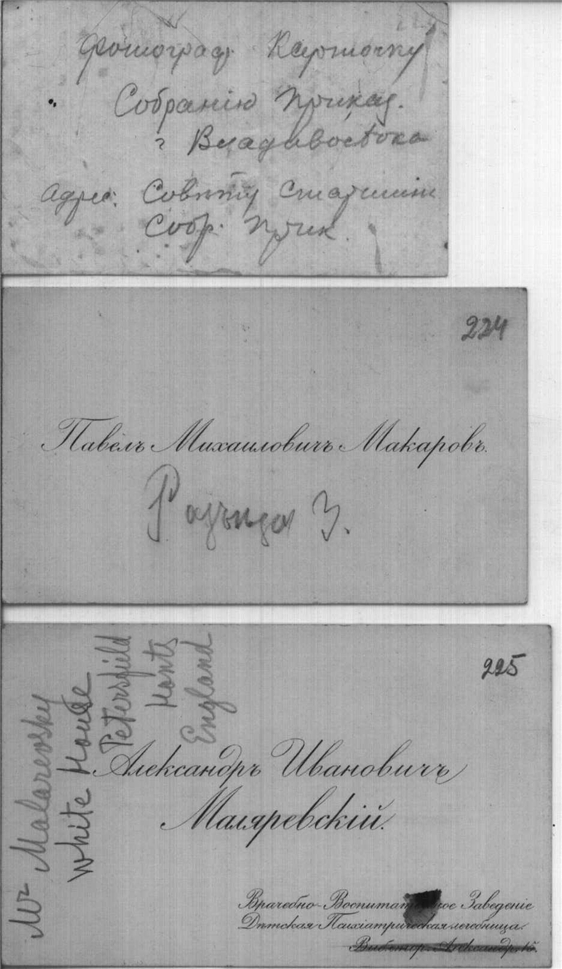 Фотограф. Карточку
Собранію Приказ.
г Владивостока
Адрес: Совѣту Старшин
Собр. Прик.
224
Павелъ Михаиловичъ Макаровъ.
3.
225
Mr Malarevsky
White House
Petersfield
Hants
England
Александръ Ивановичъ
Маляревскій.
Врачебно-Воспитательное Заведеніе
Дѣтская Психіатрическая лечебница.